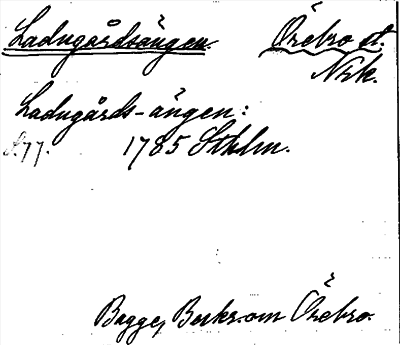 Ladugårdsängen. Örebro st.
Nrk.
Ladugårds-ängen:
s. 77. 1785 Sthlm.
Bagge, Beskr. om Örebro.